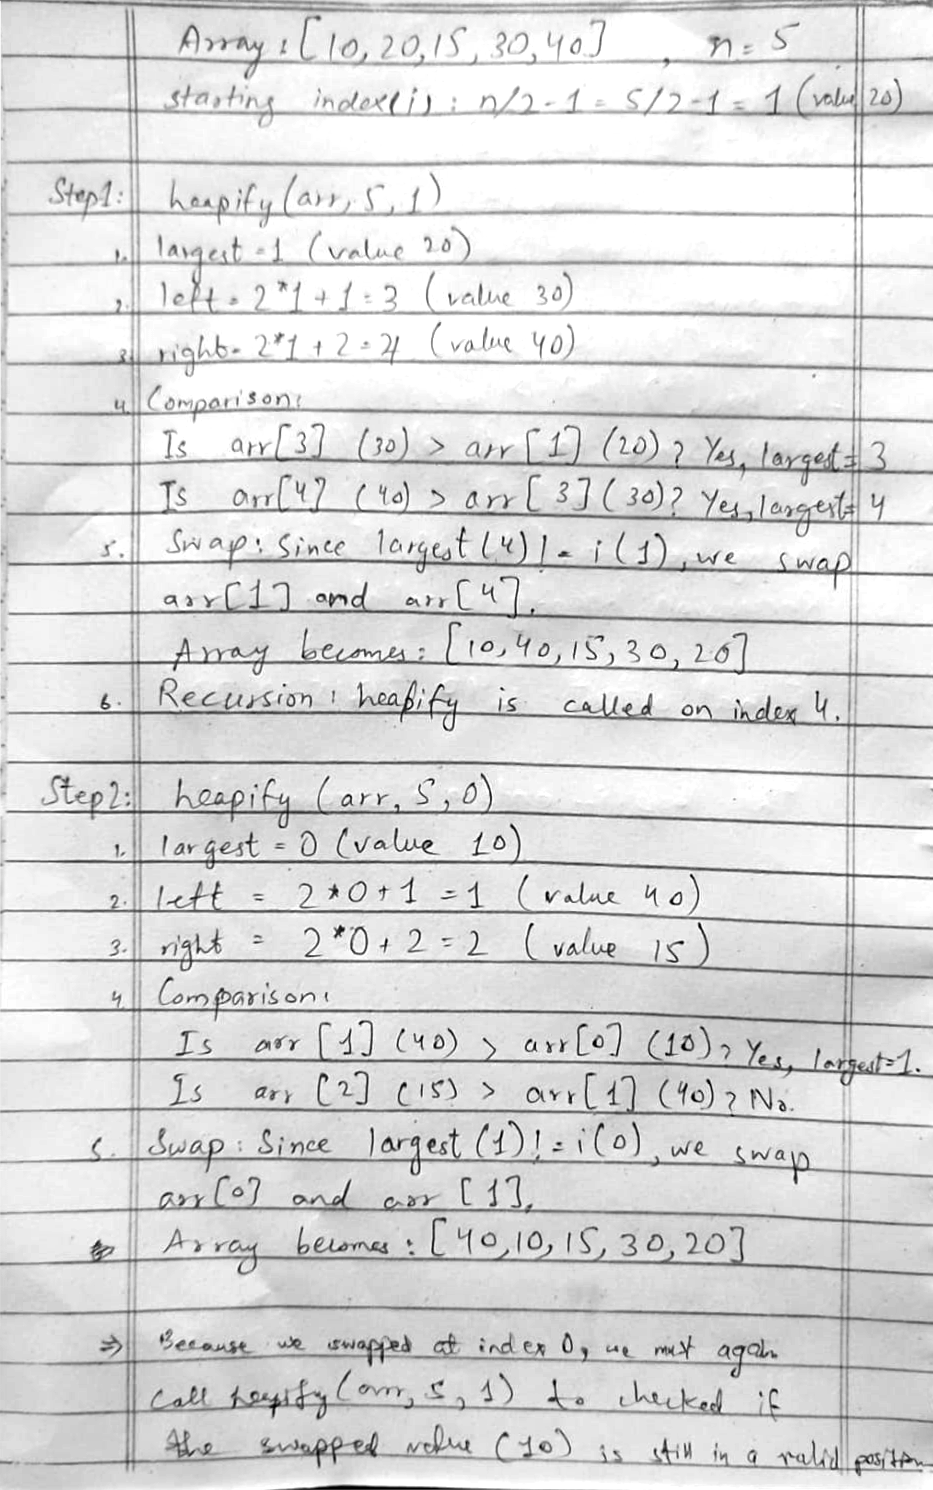 Array : [10, 20, 15, 30, 40] , n = 5
starting index(i) : n/2 - 1 = 5/2 - 1 = 1 (value 20)
Step1: heapify (arr, 5, 1)
1. largest = 1 (value 20)
2. left = 2*1 + 1 = 3 (value 30)
3. right = 2*1 + 2 = 4 (value 40)
4. Comparison:
Is arr[3] (30) > arr [1] (20) ? Yes, largest = 3
Is arr[4] (40) > arr [3] (30)? Yes, largest = 4
5. Swap : Since largest (4) != i (1), we swap
arr[1] and arr[4].
Array becomes : [10, 40, 15, 30, 20]
6. Recursion : heapify is called on index 4.
Step2: heapify (arr, 5, 0)
1. largest = 0 (value 10)
2. left = 2*0+1 = 1 (value 40)
3. right = 2*0 + 2 = 2 (value 15)
4. Comparison:
Is arr [1] (40) > arr[0] (10) ? Yes, largest=1.
Is arr [2] (15) > arr[1] (40) ? No.
5. Swap : Since largest (1) != i(0), we swap
arr[0] and arr [1].
Array becomes : [40, 10, 15, 30, 20]
⇒ Because we swapped at index 0, we must again
call heapify (arr, 5, 1) to checked if
the swapped value (10) is still in a valid position